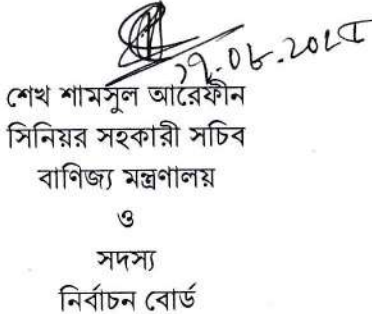 শেখ শামসুল আরেফীন
সিনিয়র সহকারী সচিব
বাণিজ্য মন্ত্রণালয়
ও
সদস্য
নির্বাচন বোর্ড